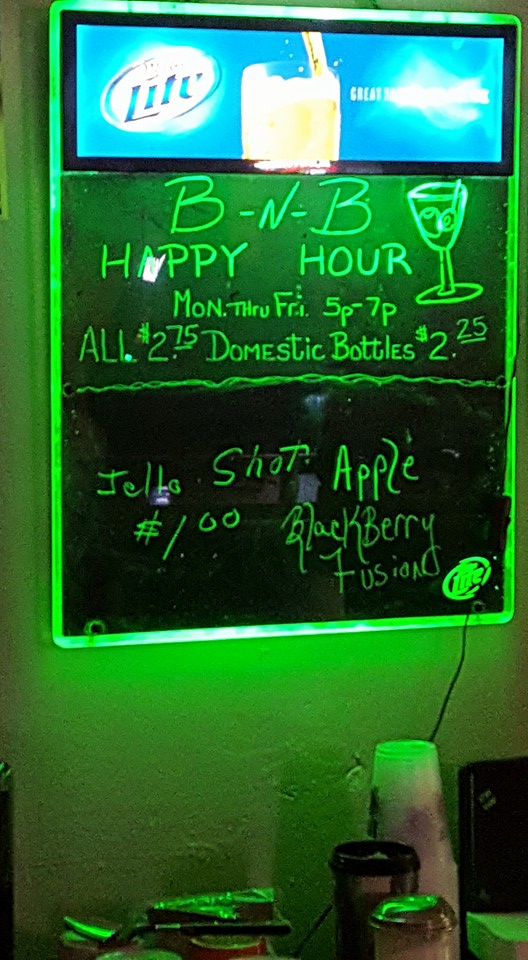 Lite
GREAT
B-N-B
HAPPY HOUR
MON. THRU FRI. 5p-7p
ALL $2.75 DOMESTIC BOTTLES $2.25
Jello Shot Apple
$1.00 BlackBerry
Fusion
Lite